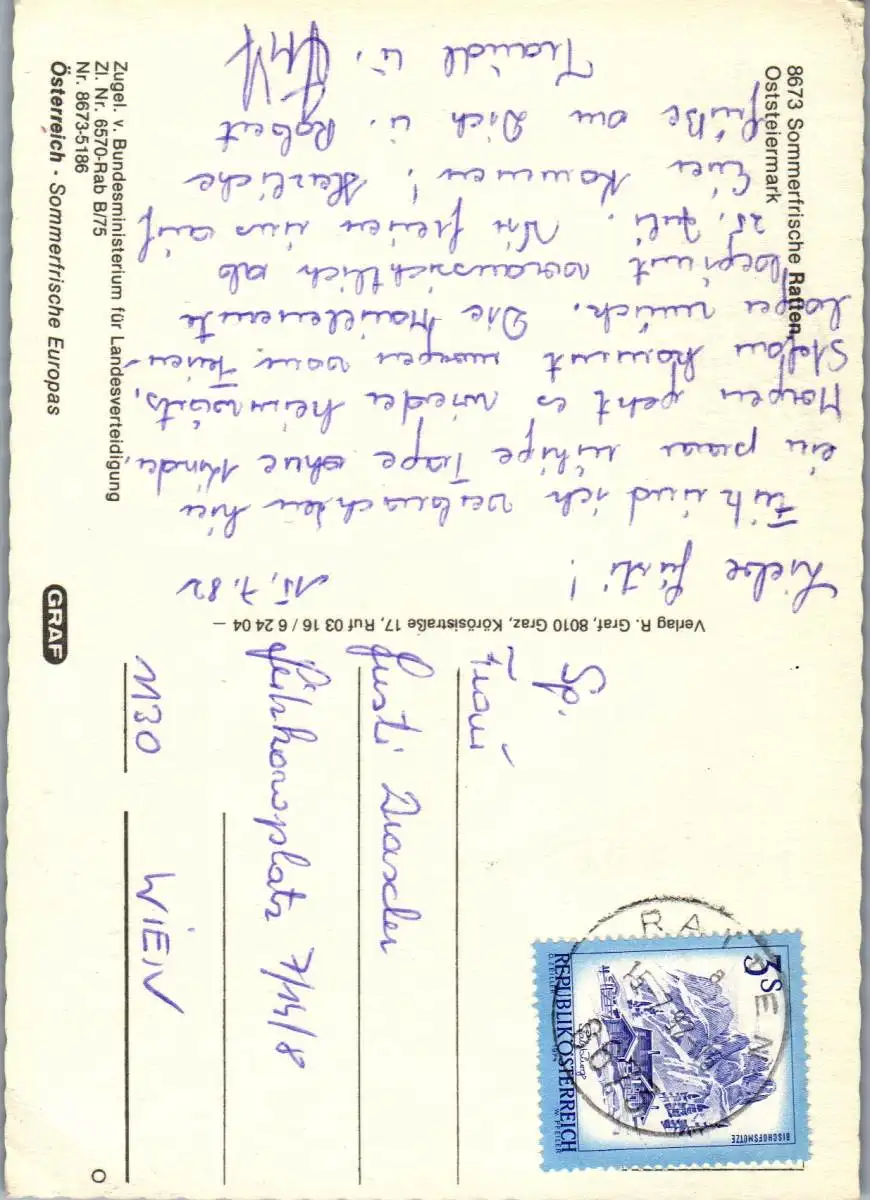 8673 Sommerfrische Ratten,
Oststeiermark
15.7.82
Liebe Gusti!
Fritz und ich verbrachten hier
ein paar ruhige Tage ohne Kinder.
Morgen geht es wieder heimwärts,
Stefan kommt morgen vom Ferien-
lager zurück. Die Marillenernte
beginnt voraussichtlich ab
25. Juli. Wir freuen uns auf
Euer Kommen! Herzliche
Grüße an Dich u. Robert
Traudl u.
Zugel. v. Bundesministerium für Landesverteidigung
Zl. Nr. 6570-Rab B/75
Nr. 8673-5186
Österreich · Sommerfrische Europas
Verlag R. Graf, 8010 Graz, Körösistraße 17, Ruf 03 16 / 6 24 04 –
GRAF
Frau
Gusti Draxler
7/14/8
1130 WIEN
3 S
REPUBLIK ÖSTERREICH
BISCHOFSMÜTZE
O. ZEILLER
1974
W. PFEILER
RATTEN
15.7.82
8673